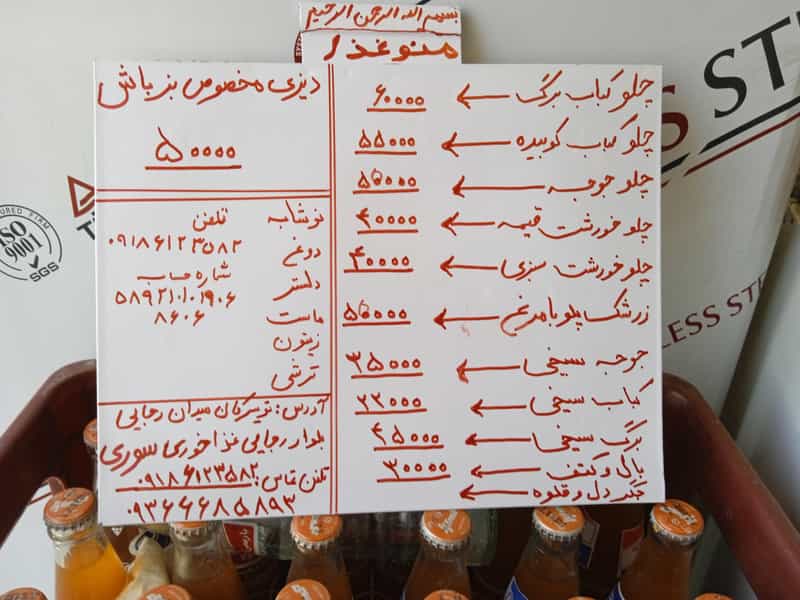 بسم الله الرحمن الرحیم
منو غذا
چلو کباب برگ ← ۶۰۰۰۰
چلو کباب کوبیده ← ۵۵۰۰۰
چلو جوجه ← ۵۵۰۰۰
چلو خورشت قیمه ← ۴۰۰۰۰
چلو خورشت سبزی ← ۴۰۰۰۰
زرشک پلو با مرغ ← ۵۵۰۰۰
جوجه سیخی ← ۳۵۰۰۰
کباب سیخی ← ۲۲۰۰۰
برگ سیخی ← ۴۵۰۰۰
بال و کتف ← ۳۰۰۰۰
جگر دل و قلوه ←
دیزی مخصوص بزباش
۵۰۰۰۰
نوشابه
دوغ
دلستر
ماست
زیتون
ترشی
تلفن
۰۹۱۸۶۱۲۳۵۸۲
شماره حساب
۵۸۹۲۱۰۱۰۱۹۰۶
۸۶۰۶
آدرس: تویسرکان میدان رجایی
بلوار رجایی غذاخوری سوری
تلفن تماس: ۰۹۱۸۶۱۲۳۵۸۲
۰۹۳۶۶۶۸۵۸۹۳
ISO
9001
SGS
S ST
LESS STE